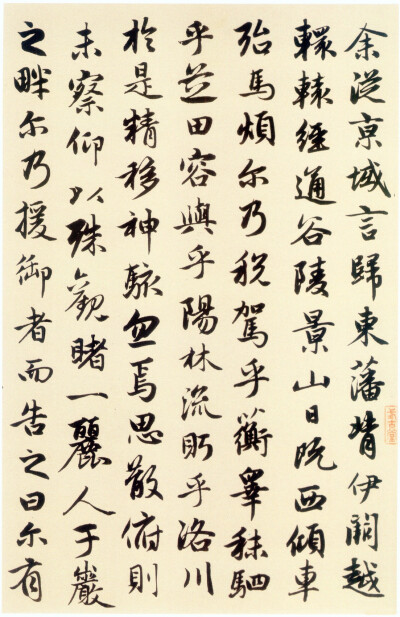 余從京域言歸東藩背伊闕越
轘轅經通谷陵景山日既西傾車
殆馬煩尔乃稅駕乎蘅皋秣駟
乎芝田容與乎陽林流眄乎洛川
於是精移神駭忽焉思散俯則
未察仰以殊觀睹一麗人于巖
之畔尔乃援御者而告之曰尔有